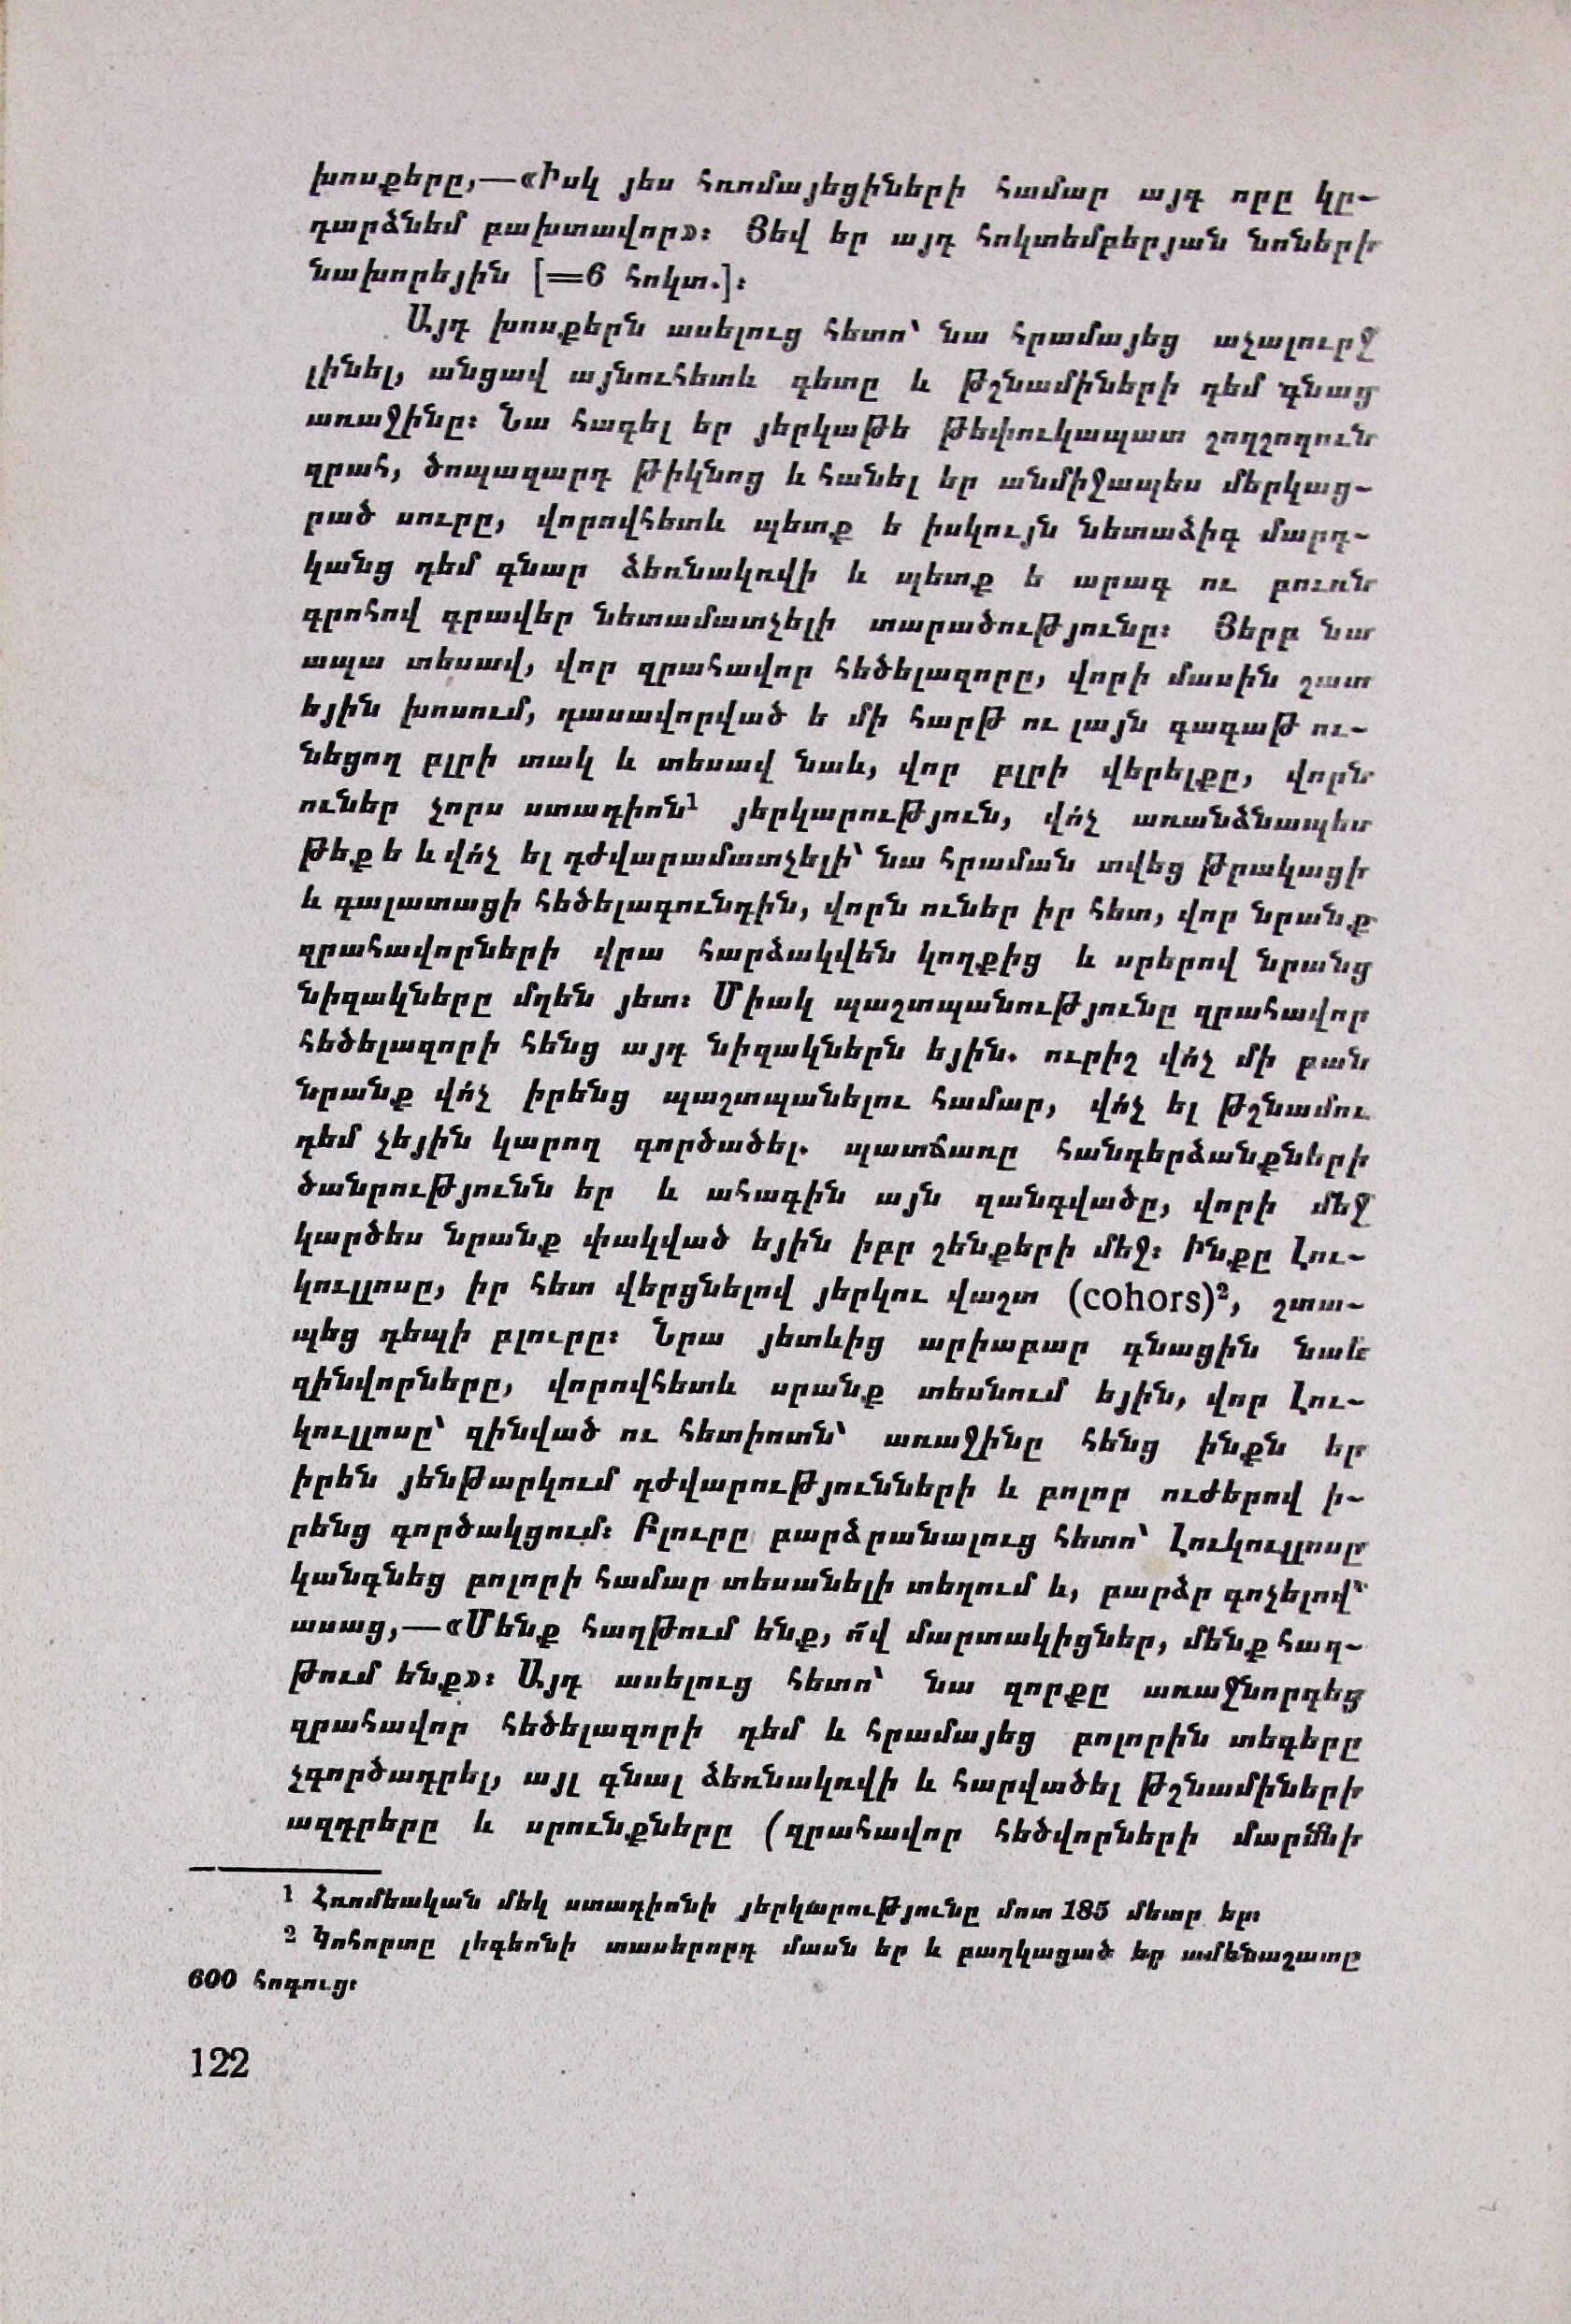 խոսքերը,—«Իսկ յես հռոմայեցիների համար այդ որը կը-
դարձնեմ բախտավոր»։ Յեվ եր այդ հոկտեմբերյան նոների
նախորեյին [=6 հոկտ.]։
Այդ խոսքերն ասելուց հետո՝ նա հրամայեց աչալուրջ
լինել, անցավ այնուհետև գետը և թշնամիների դեմ գնաց
առաջինը։ Նա հագել եր յերկաթե թեփուկապատ շողշողուն
զրահ, ծոպազարդ թիկնոց և հանել եր անմիջապես մերկաց-
րած սուրը, վորովհետև պետք ե իսկույն նետաձիգ մարդ-
կանց դեմ գնար ձեռնակռվի և պետք ե արագ ու բուռն
գրոհով գրավեր նետամատչելի տարածությունը։ Յերբ նա
ապա տեսավ, վոր զրահավոր հեծելազորը, վորի մասին շատ
եյին խոսում, դասավորված ե մի հարթ ու լայն գագաթ ու-
նեցող բլրի տակ և տեսավ նաև, վոր բլրի վերելքը, վորն
ուներ չորս ստադիոն¹ յերկարություն, վո՛չ առանձնապես
թեք ե և վո՛չ ել դժվարամատչելի՝ նա հրաման տվեց թրակացի
և գալատացի հեծելագունդին, վորն ուներ իր հետ, վոր նրանք
զրահավորների վրա հարձակվեն կողքից և սրերով նրանց
նիզակները մղեն յետ։ Միակ պաշտպանությունը զրահավոր
հեծելազորի հենց այդ նիզակներն եյին. ուրիշ վո՛չ մի բան
նրանք վո՛չ իրենց պաշտպանելու համար, վո՛չ ել թշնամու
դեմ չեյին կարող գործածել. պատճառը հանդերձանքների
ծանրությունն եր և ահագին այն զանգվածը, վորի մեջ
կարծես նրանք փակված եյին իբր շենքերի մեջ։ Ինքը Լու-
կուլլոսը, իր հետ վերցնելով յերկու վաշտ (cohors)², շտա-
պեց դեպի բլուրը։ Նրա յետևից արիաբար գնացին նաև
զինվորները, վորովհետև սրանք տեսնում եյին, վոր Լու-
կուլլոսը՝ զինված ու հետիոտն՝ առաջինը հենց ինքն եր
իրեն յենթարկում դժվարությունների և բոլոր ուժերով ի-
րենց գործակցում։ Բլուրը բարձրանալուց հետո՝ Լուկուլլոսը
կանգնեց բոլորի համար տեսանելի տեղում և, բարձր գոչելով՝
ասաց,—«Մենք հաղթում ենք, ո՜վ մարտակիցներ, մենք հաղ-
թում ենք»։ Այդ ասելուց հետո՝ նա զորքը առաջնորդեց
զրահավոր հեծելազորի դեմ և հրամայեց բոլորին տեգերը
չգործադրել, այլ գնալ ձեռնակռվի և հարվածել թշնամիների
ազդրերը և սրունքները (զրահավոր հեծվորների մարմնի
¹ Հռոմեական մեկ ստադիոնի յերկարությունը մոտ 185 մետր եր։
² Կոհորտը լեգեոնի տասերորդ մասն եր և բաղկացած եր ամենաշատը
600 հոգուց։
122